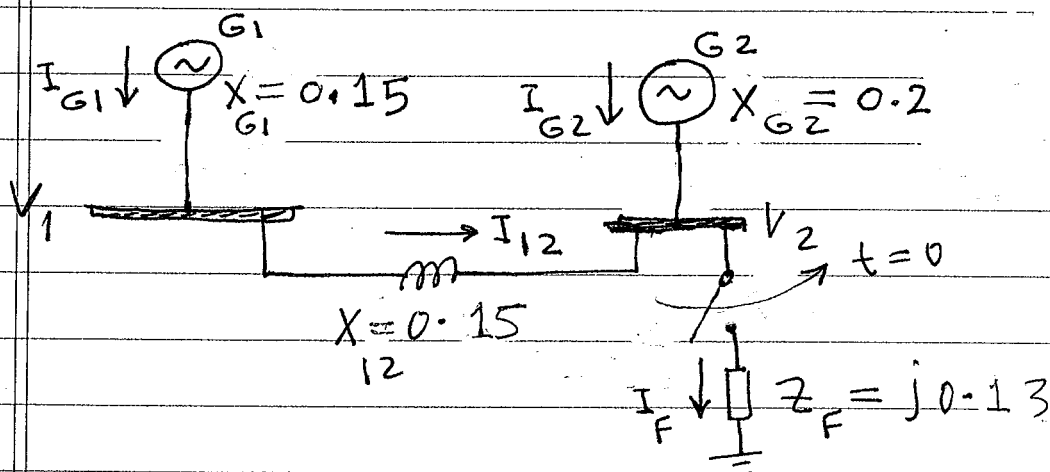 G1
I_G1 X_G1 = 0.15
G2
I_G2 X_G2 = 0.2
V_1
I_12
V_2
t = 0
X_12 = 0.15
I_F Z_F = j0.13